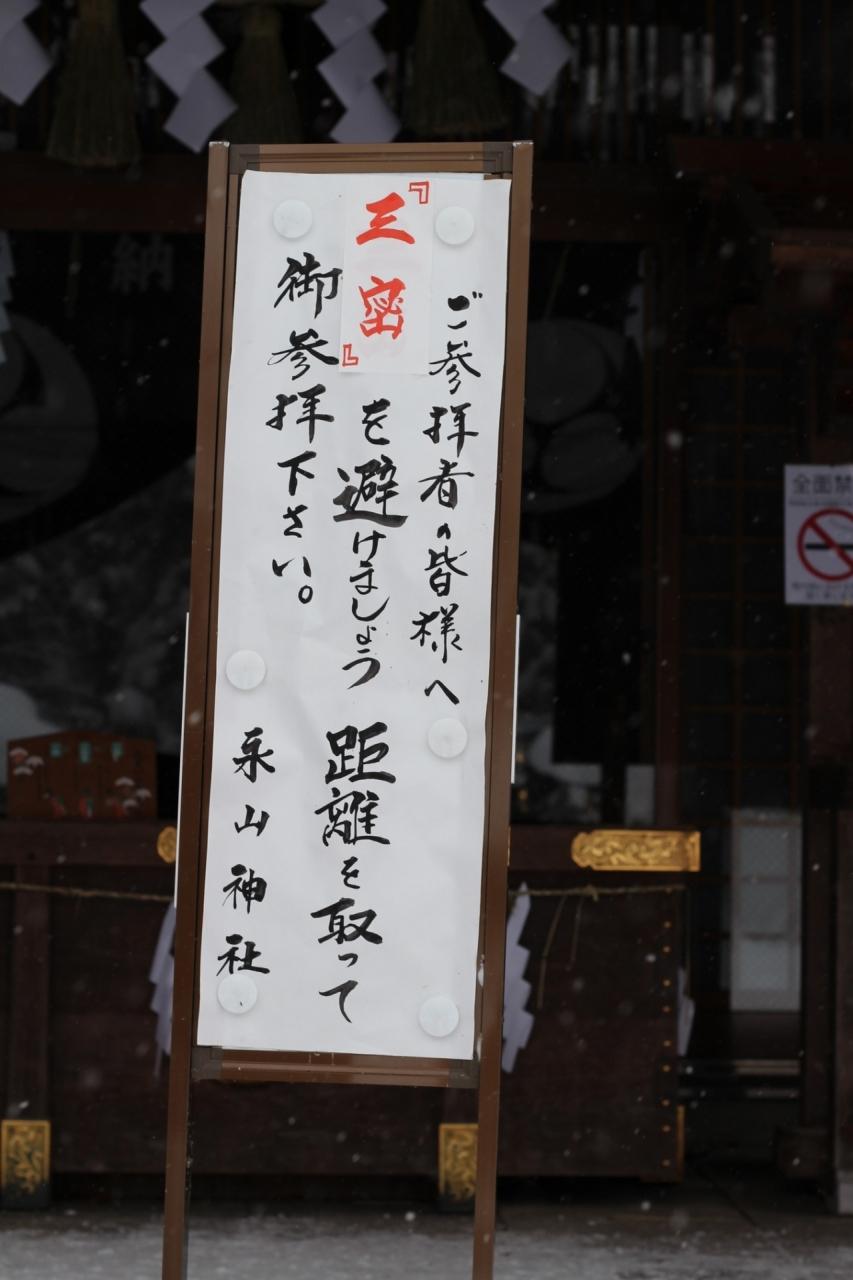 ご参拝者の皆様へ
『三密』を避けましょう 距離を取って
御参拝下さい。
山神社
納
全面禁